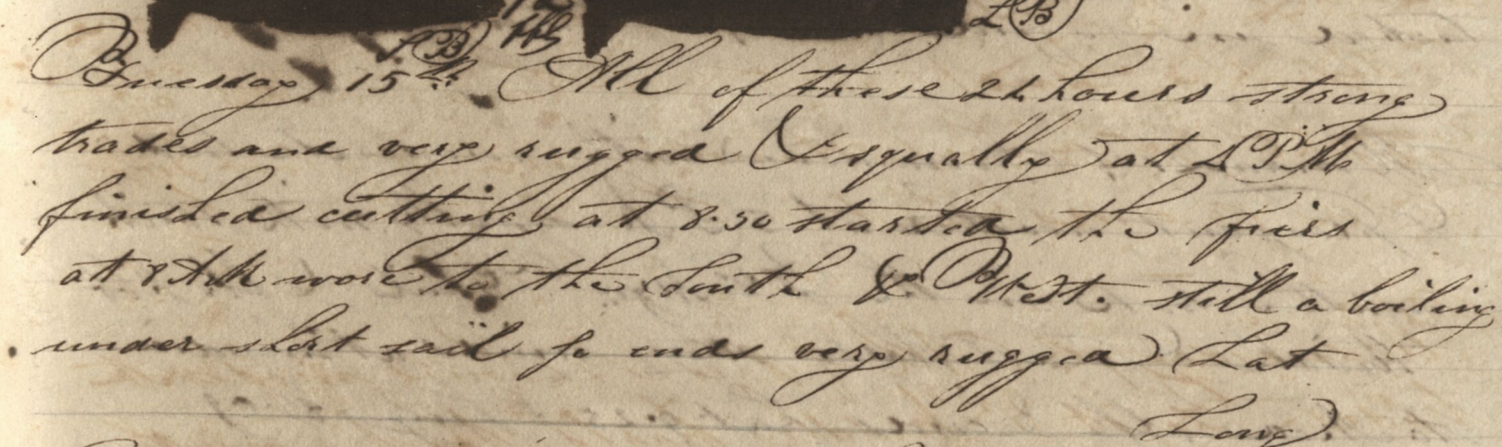 LB
LB
Tuesday 15th All of these 24 hours strong
trades and very rugged & squally at 4 PM
finished cutting at 8.30 started the fiers
at 8 AM wore to the South & West. still a boiling
under short sail so ends very rugged Lat
Long